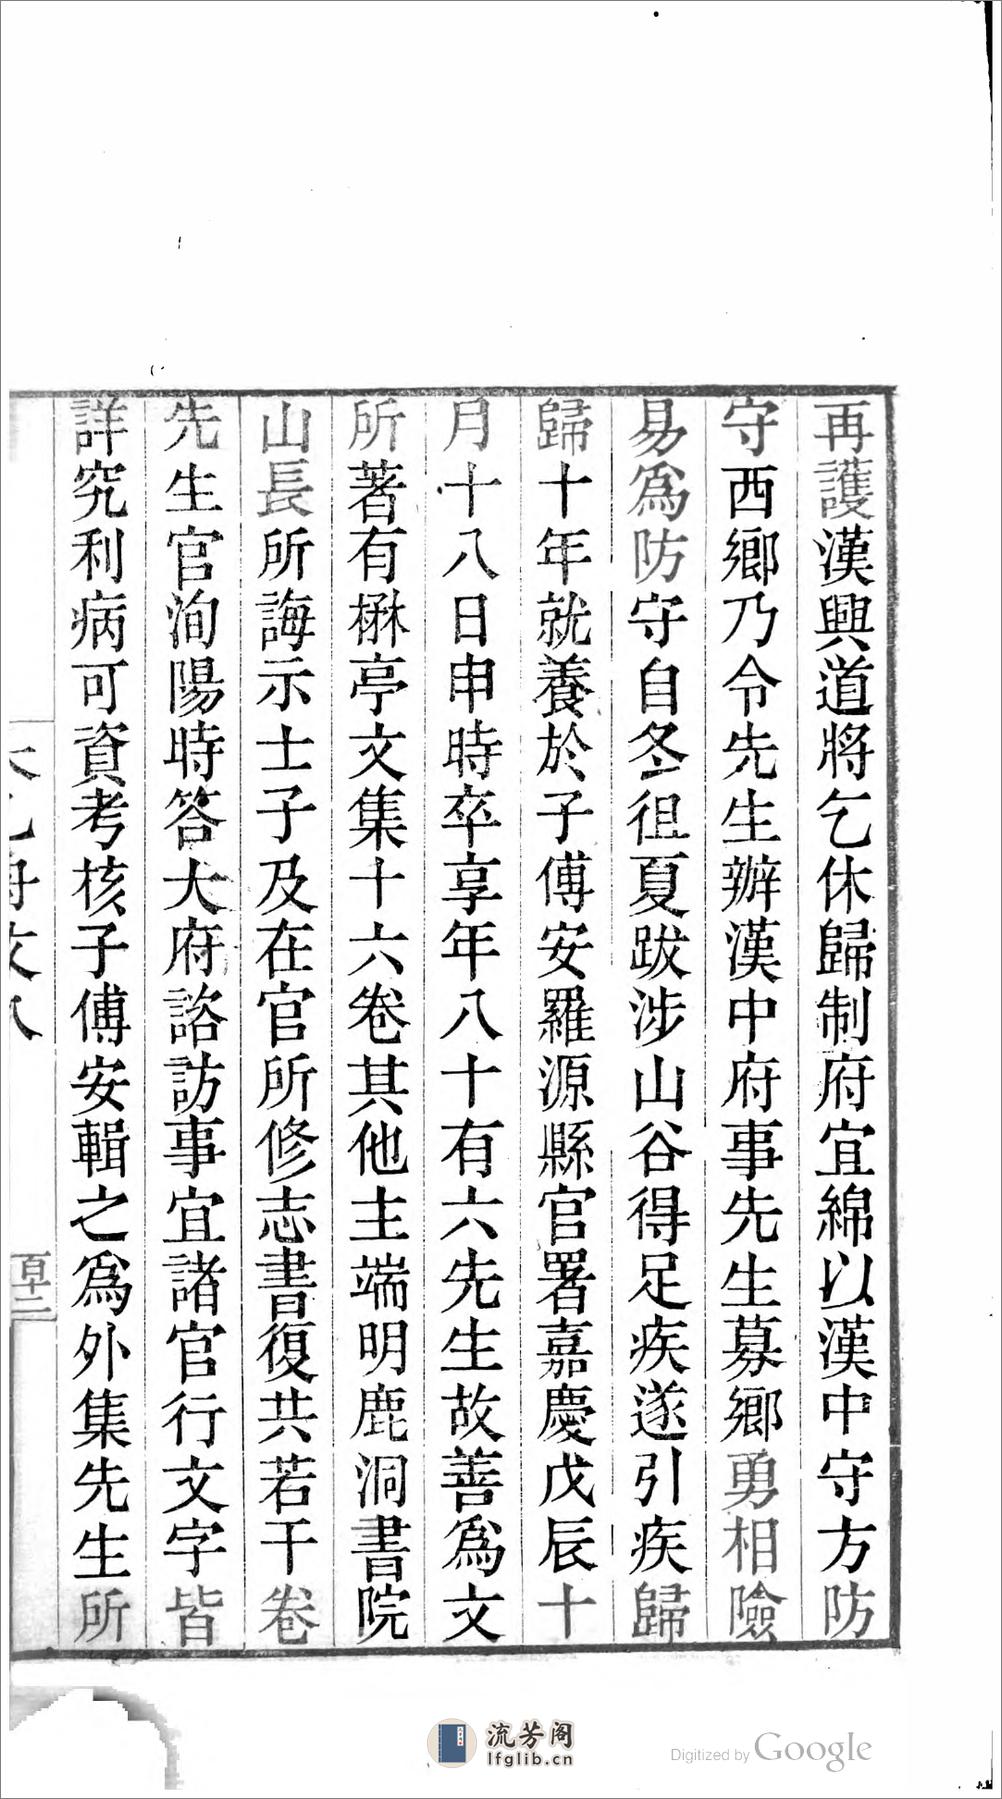 再護漢興道將乞休歸制府宜綿以漢中守方防
守西鄉乃令先生辦漢中府事先生募鄉勇相險
易爲防守自冬徂夏跋涉山谷得足疾遂引疾歸
歸十年就養於子傅安羅源縣官署嘉慶戊辰十
月十八日申時卒享年八十有六先生故善爲文
所著有楙亭文集十六卷其他主端明鹿洞書院
山長所誨示士子及在官所修志書復共若干卷
先生官洵陽時答大府諮訪事宜諸官行文字皆
詳究利病可資考核子傅安輯之爲外集先生所
百十二
流芳阁
lfglib.cn
Digitized by Google